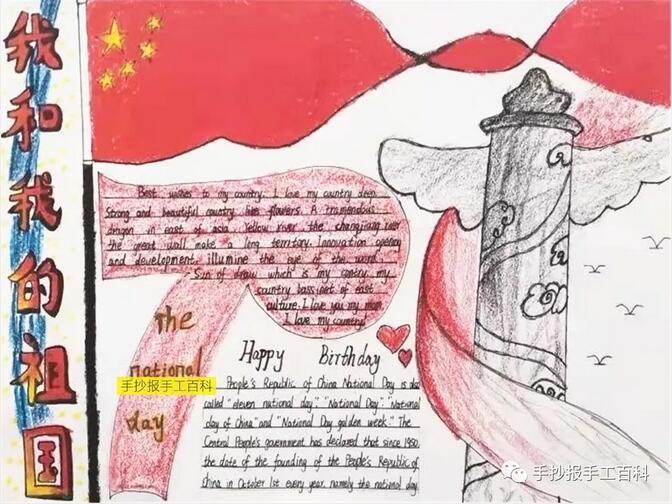 我和我的祖国
Best wishes to my country. I love my country deep.
Strong and beautiful country likes flowers. A tramendous
dragon in east of asia. Yellow river the changjiang river
the great wall make a long territory. Innovation agency
and development, illumine the eye of the word.
Sun of draw which is my contry my
country bass, net of east
culture. I love you my mom.
I love my country
The
national
day
Happy Birthday
手抄报手工百科
People's Republic of China National Day is also
called "eleven national day". "National Day". "National
day of China" and "National Day golden week." The
Central People's government has declared that since 1950,
the date of the founding of the People's Republic of
China in October 1st every year, namely the national day
手抄报手工百科